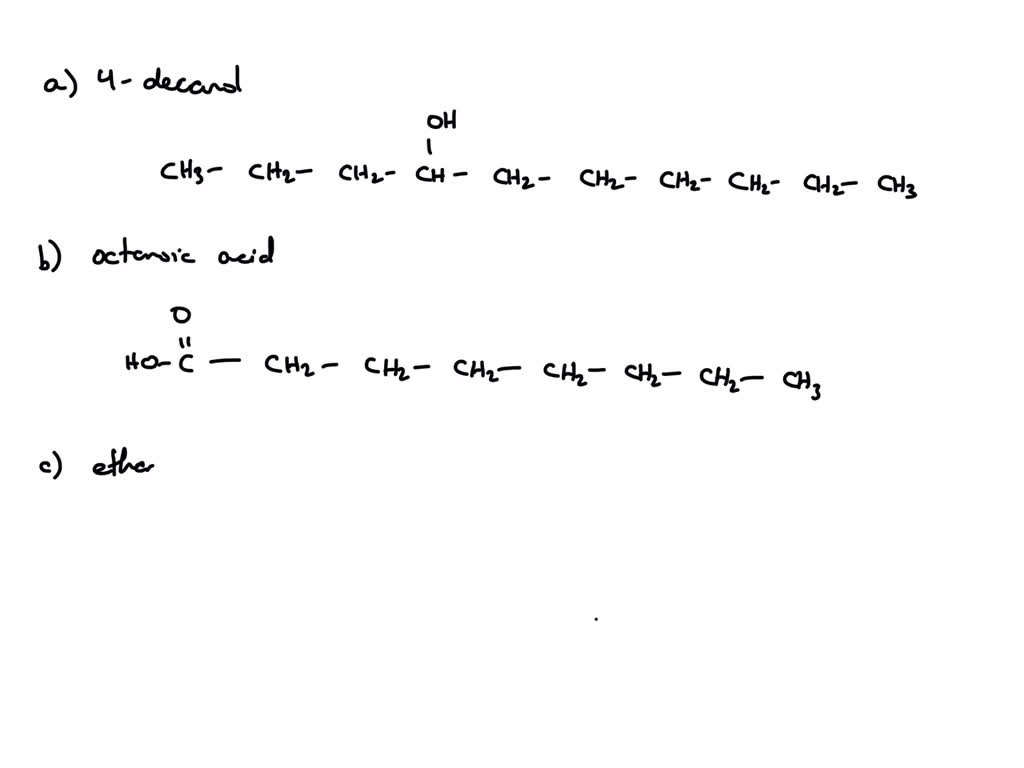 a) 4-decanol
OH
CH3- CH2- CH2- CH - CH2- CH2- CH2- CH2- CH2- CH3
b) octanoic acid
O
HO- C - CH2- CH2- CH2- CH2- CH2- CH2- CH3
c) ethan